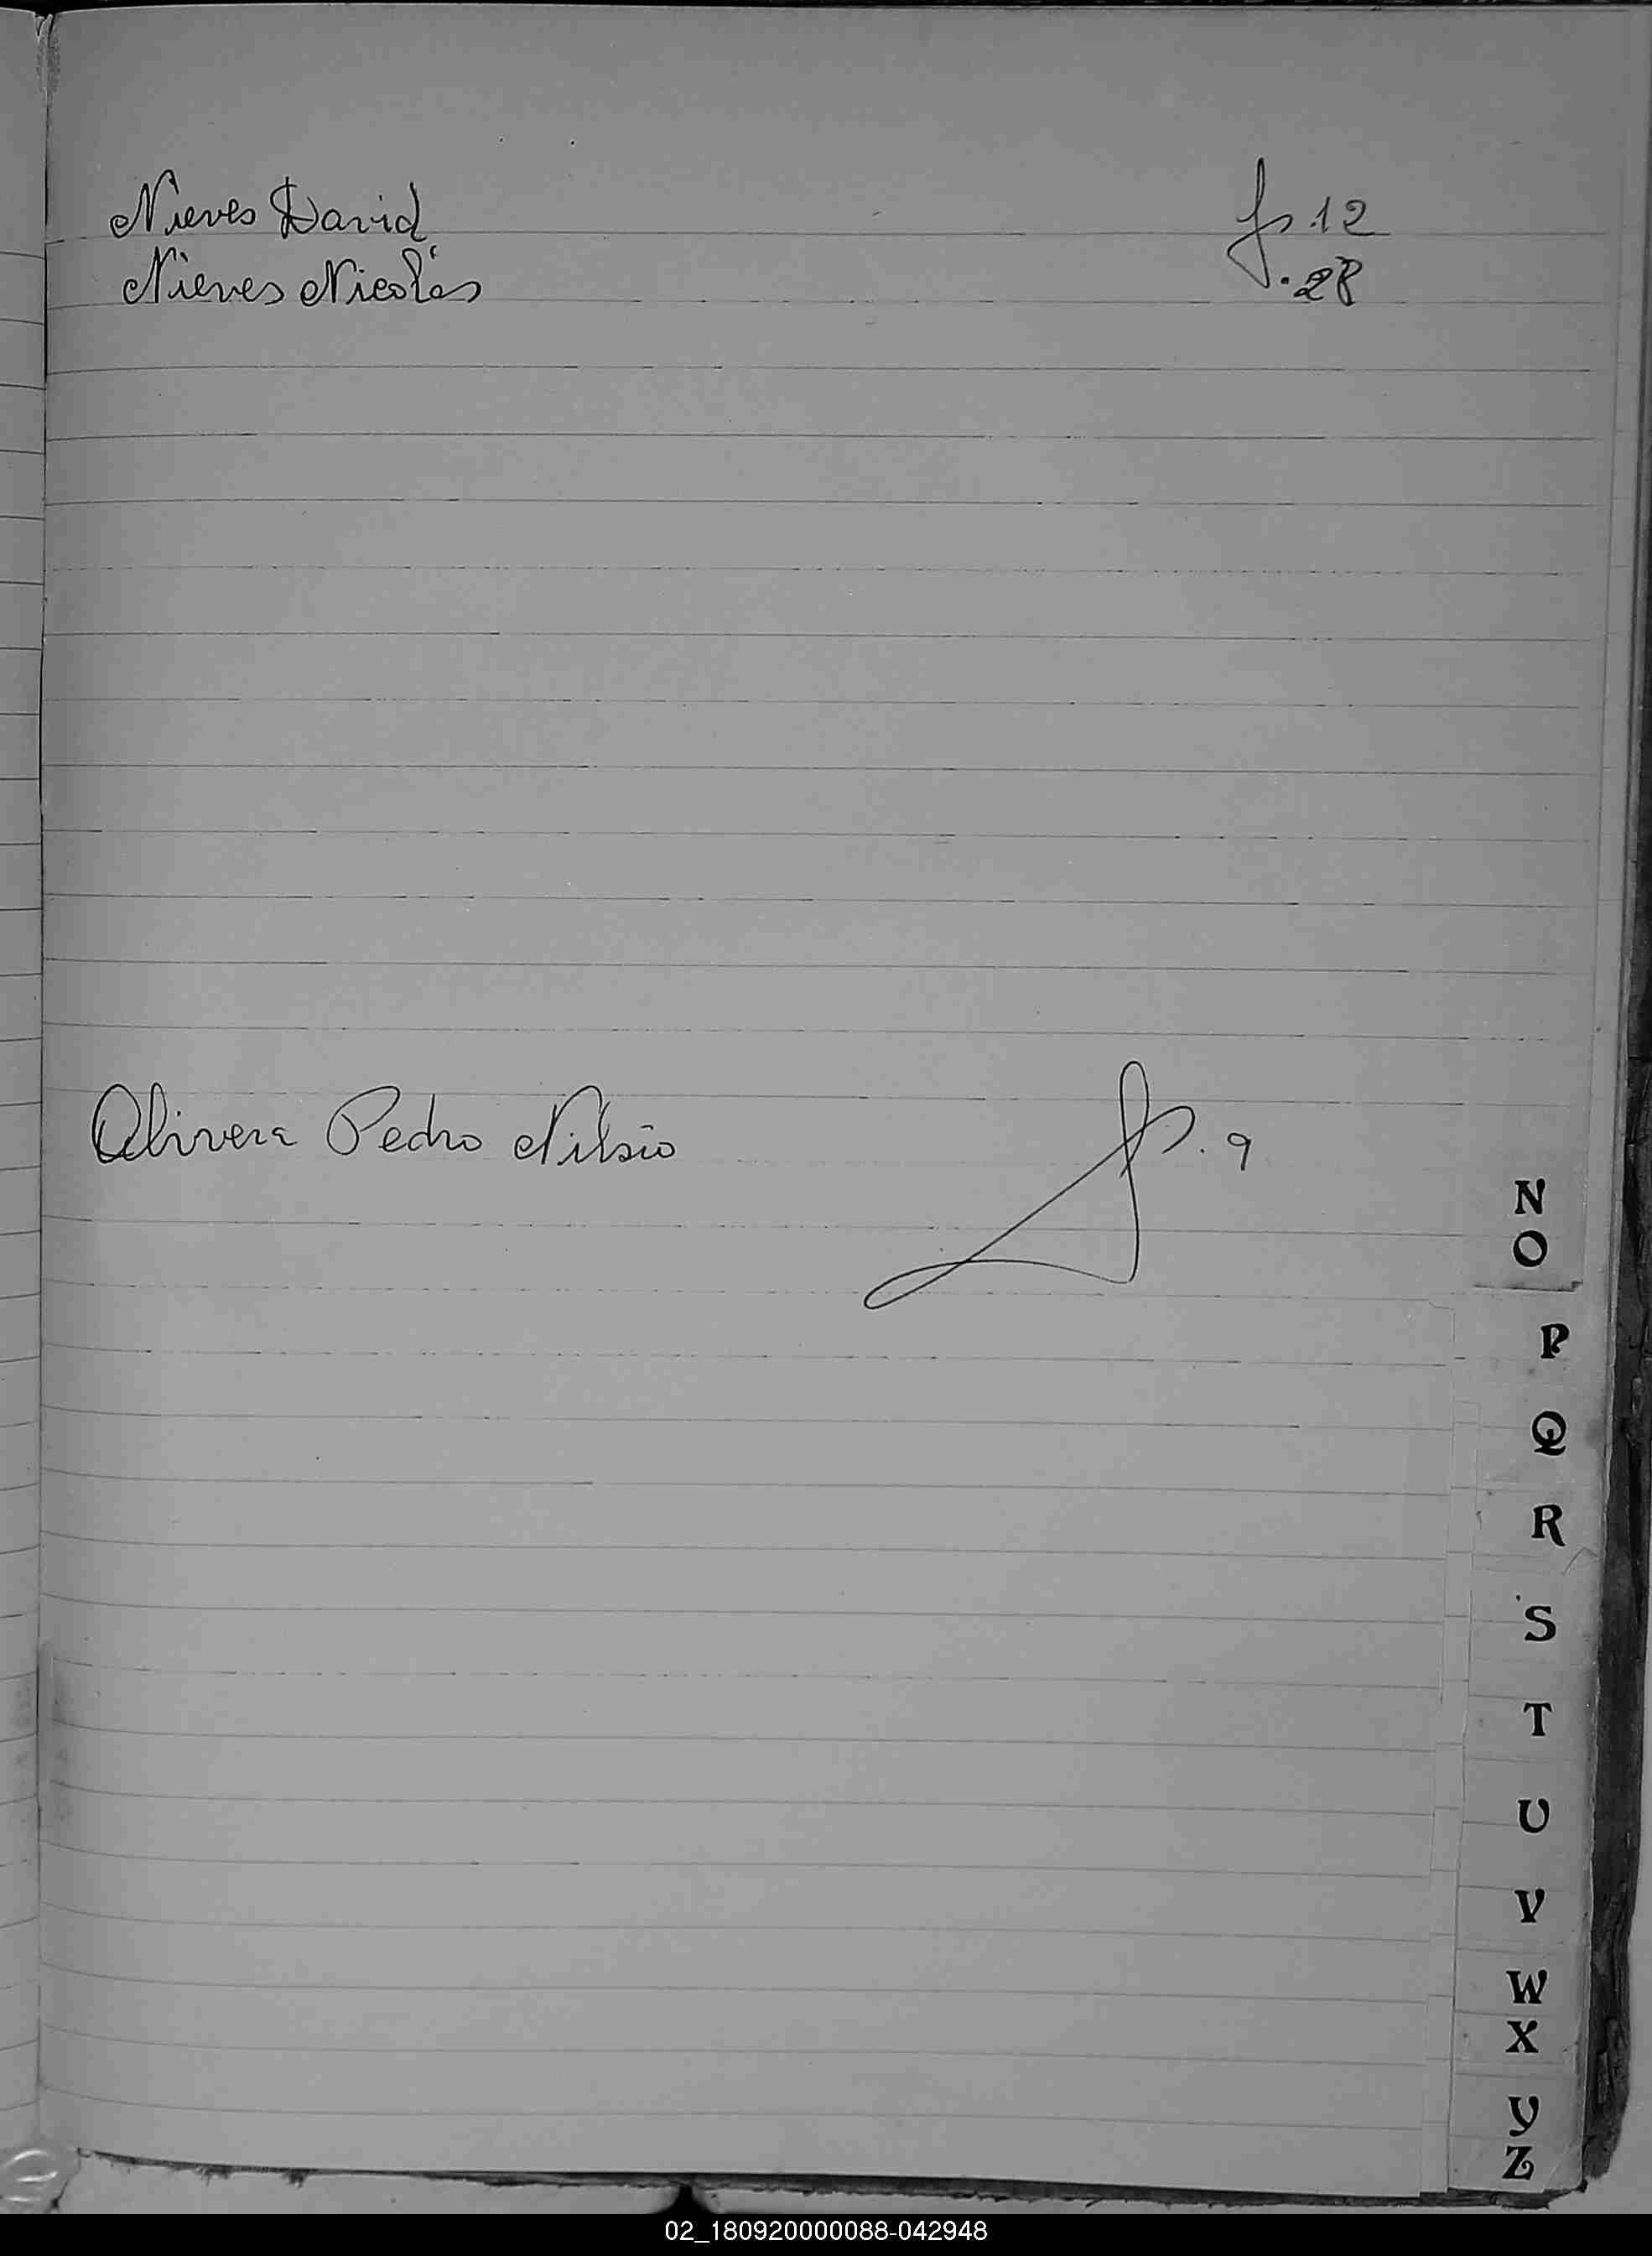 Nieves David fs. 12
Nieves Nicolás . 28
Olivera Pedro Nilsio fs. 9
N
O
P
Q
R
S
T
U
V
W
X
Y
Z
02_180920000088-042948